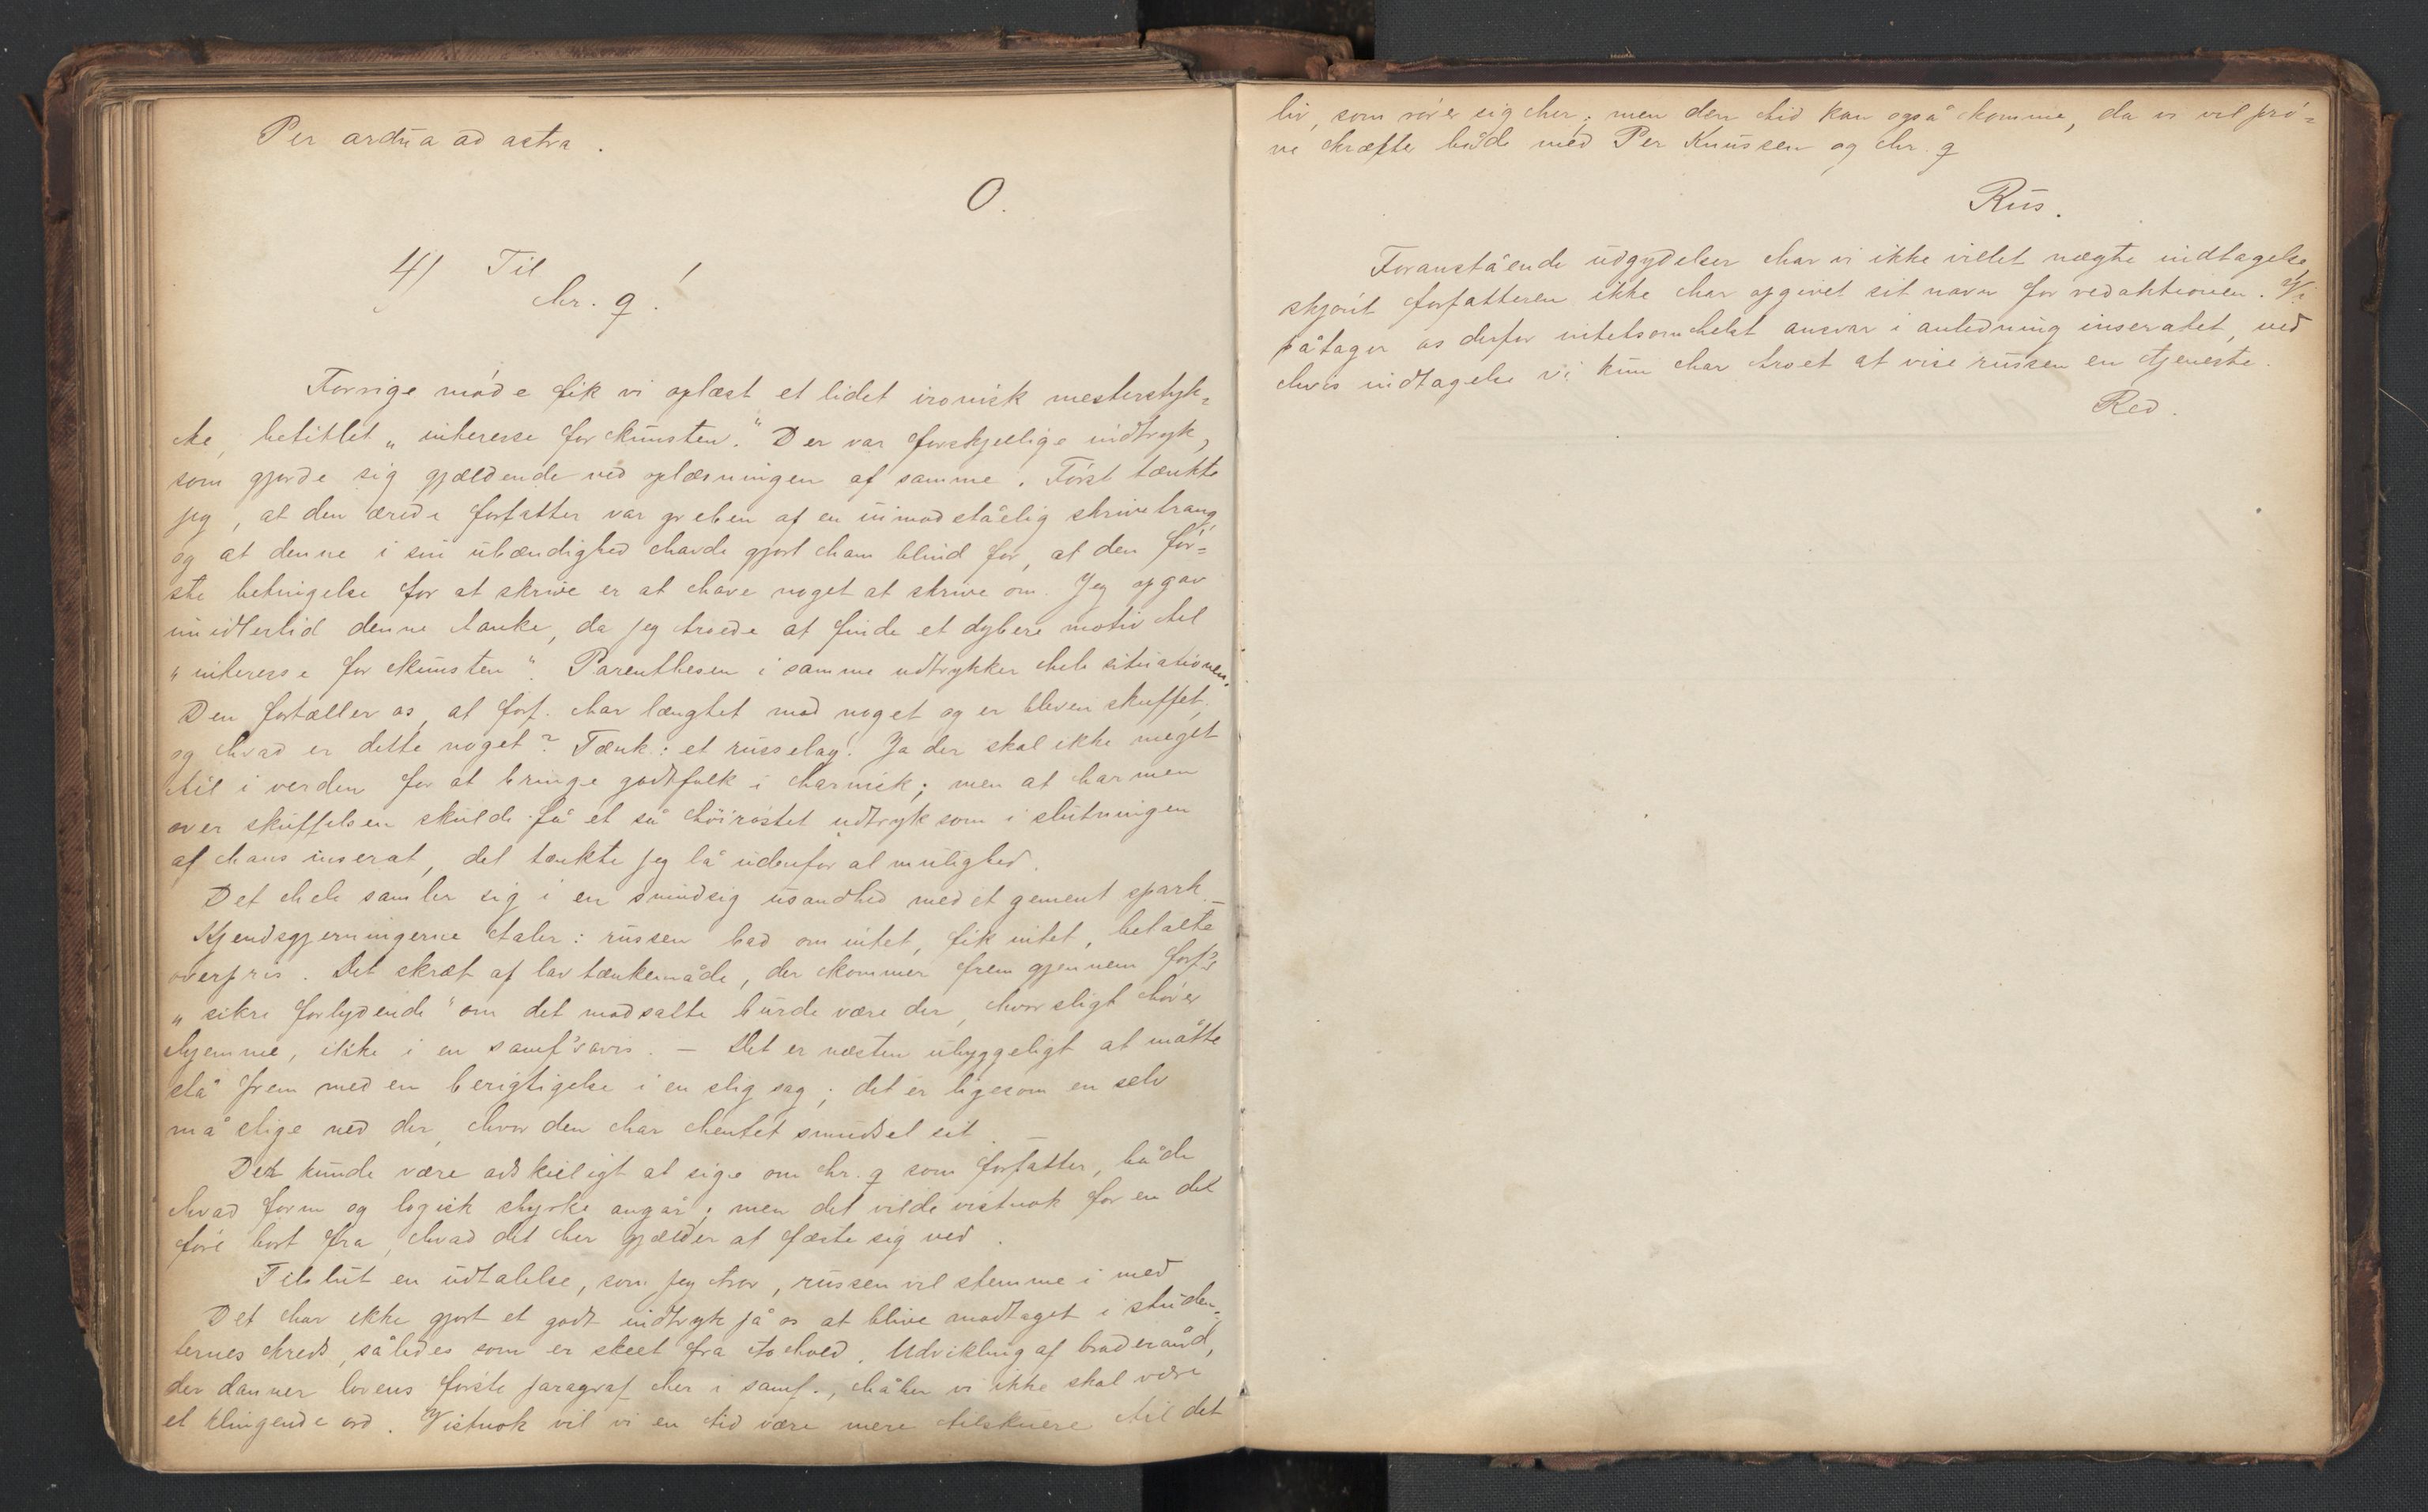 Per ardua ad astra.
O.
4/ Til
hr. q.!
Forrige møde fik vi oplæst et lidet ironisk mesterstyk=
ke, betitlet „interesse for kunsten." Der var forskjellige indtryk,
som gjorde sig gjældende ved oplæsningen af samme. Først tænkte
jeg, at den ærede forfatter var greben af en uimodståelig skrivetrang,
og at denne i sin ubændighed havde gjort ham blind for, at den før=
ste betingelse for at skrive er at have noget at skrive om. Jeg opgav
imidlertid denne tanke, da jeg troede at finde et dybere motiv til
„interesse for kunsten". Parenthesen i samme udtrykker hele situationen.
Den fortæller os, at forf. har længtet mod noget og er bleven skuffet;
og hvad er dette noget? Tænk: et russelag! Ja der skal ikke meget
til i verden for at bringe godtfolk i harnisk; men at harmen
over skuffelsen skulde få et så høirøstet udtryk som i slutningen
af hans inserat, det tænkte jeg lå udenfor al mulighed.
Det hele samler sig i en smudsig usandhed med et gement spark. –
Kjendsgjerningerne taler: russen bad om intet, fik intet, betalte
overpris. Det skræt af lav tænkemåde, der kommer frem gjennem forf's
„sikre forlydende" om det modsatte burde være der, hvor sligt hører
hjemme, ikke i en samf's avis. – Det er næsten uhyggeligt at måtte
stå frem med en berigtigelse i en slig sag; det er ligesom en selv
må stige ned der, hvor den har hentet smudset sit. –
Det kunde være adskilligt at sige om hr. q som forfatter, både
hvad form og logisk styrke angår; men det vilde vistnok for en del
føre bort fra, hvad det her gjælder at fæste sig ved.
Tilslut en udtalelse, som jeg tror, russen vil stemme i med
Det har ikke gjort et godt indtryk på os at blive modtaget i studen=
ternes kreds, således som er skeet fra to hold. Udvikling af broderånd,
der danner lovens første paragraf her i samf., håber vi ikke skal være
et klingende ord. Vistnok vil vi en tid være mere tilskuere til det
liv, som rører sig her; men den tid kan også komme, da vi vil prø=
ve kræfter både med Per Knussen og hr. q
Rus.
Foranstående udgydelser har vi ikke villet nægte indtagelse,
skjønt forfatteren ikke har opgivet sit navn for redaktionen. Vi
påtager os derfor intetsomhelst ansvar i anledning inseratet, ved
hvis indtagelse vi kun har troet at vise russen en tjeneste.
Red.